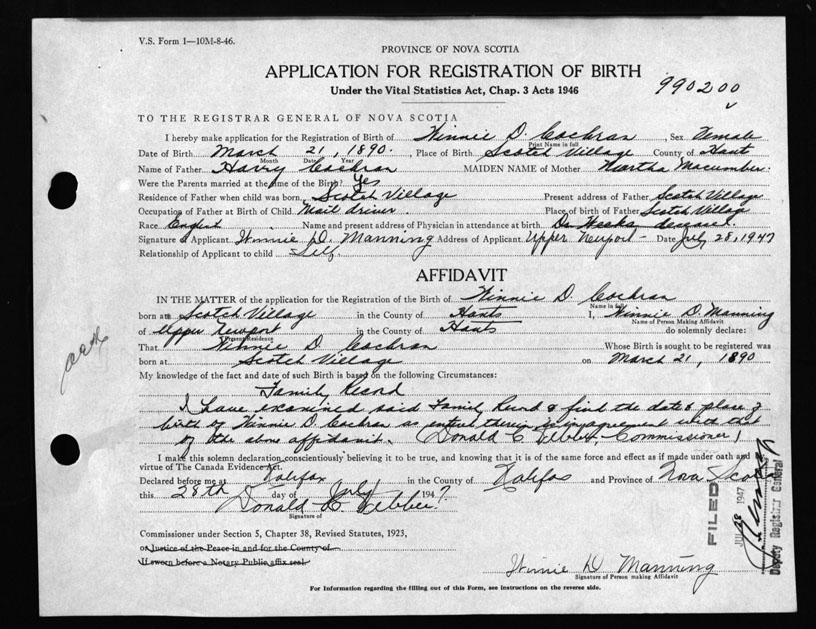 V.S. Form 1—10M-8-46.
PROVINCE OF NOVA SCOTIA
APPLICATION FOR REGISTRATION OF BIRTH
Under the Vital Statistics Act, Chap. 3 Acts 1946
990200
TO THE REGISTRAR GENERAL OF NOVA SCOTIA
I hereby make application for the Registration of Birth of Winnie D. Cochran, Sex Female
Print Name in full
Date of Birth March 21, 1890. Place of Birth Scotch Village County of Hants
Month Date Year
Name of Father Harry Cochran MAIDEN NAME of Mother Martha Macumber.
Were the Parents married at the time of the Birth? Yes
Residence of Father when child was born Scotch Village Present address of Father Scotch Village
Occupation of Father at Birth of Child Mail driver. Place of birth of Father Scotch Village
Race English Name and present address of Physician in attendance at birth Dr Weeks deceased.
Signature of Applicant Winnie D. Manning Address of Applicant Upper Newport Date July 28, 1947
Relationship of Applicant to child Self.
AFFIDAVIT
IN THE MATTER of the application for the Registration of the Birth of Winnie D. Cochran
Name in full
born at Scotch Village in the County of Hants I, Winnie D. Manning
Name of Person Making Affidavit
of Upper Newport in the County of Hants do solemnly declare:
Present Residence
That Winnie D Cochran Whose Birth is sought to be registered was
born at Scotch Village on March 21, 1890
My knowledge of the fact and date of such Birth is based on the following Circumstances:
Family Record
I have examined said Family Record & find the date & place of
birth of Winnie D. Cochran as entered therein in agreement with that
of the above affidavit. Donald C. Webber, Commissioner
I make this solemn declaration conscientiously believing it to be true, and knowing that it is of the same force and effect as if made under oath and by
virtue of The Canada Evidence Act.
Declared before me at Halifax in the County of Halifax and Province of Nova Scotia
this 28th day of July 1947.
Donald C. Webber
Signature of
Commissioner under Section 5, Chapter 38, Revised Statutes, 1923,
or Justice of the Peace in and for the County of
If sworn before a Notary Public affix seal
Winnie D Manning
Signature of Person making Affidavit
For Information regarding the filling out of this Form, see instructions on the reverse side.
FILED
JUL 28 1947
Deputy Registrar General